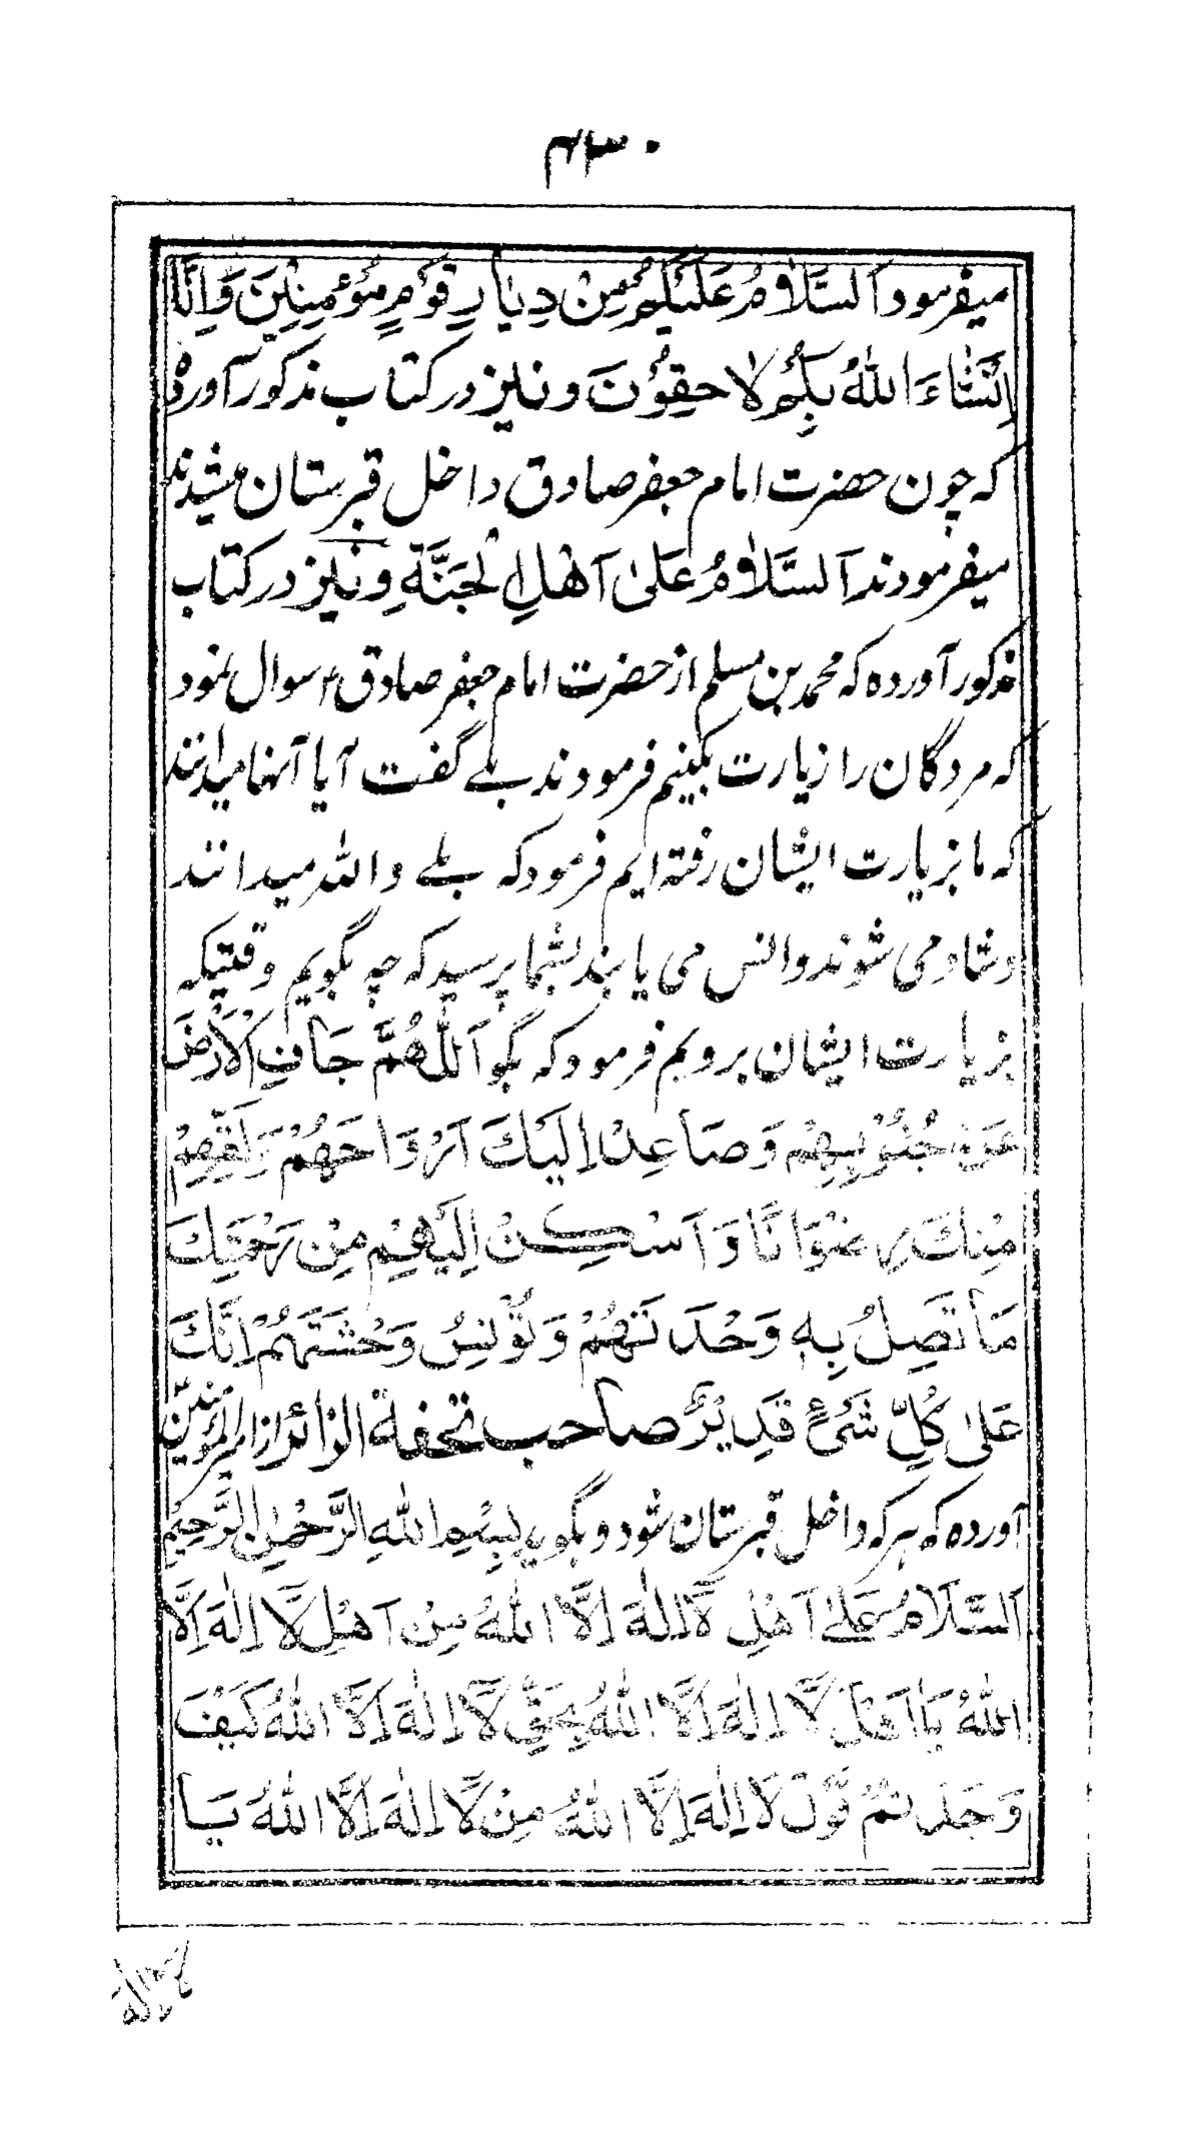 ۴۳۰
میفرمود اَلسَّلَامُ عَلَیْکُمْ مِنْ دِیَارِ قَوْمٍ مُؤْمِنِیْنَ وَاِنَّا
اِنْشَاءَ اللهُ بِکُمْ لَاحِقُوْنَ و نیز در کتاب مذکور آورده
که چون حضرت امام جعفر صادق داخل قبرستان میشدند
میفرمودند اَلسَّلَامُ عَلیٰ اَهْلِ الْجَنَّةِ و نیز در کتاب
مذکور آورده که محمد بن مسلم از حضرت امام جعفر صادق ع سوال نمود
که مردگان را زیارت بکنیم فرمودند بلے گفت آیا آنها میدانند
که ما بزیارت ایشان رفته ایم فرمود که بلے والله میدانند
و شاد می شوند و انس می یابند بشما پرسید که چه بگویم وقتیکه
بزیارت ایشان برویم فرمود که بگو اَللّٰهُمَّ جَافِ الْاَرْضَ
عَنْ جُنُوْبِهِمْ وَصَاعِدْ اِلَیْكَ اَرْوَاحَهُمْ وَلَقِّهِمْ
مِنْكَ رِضْوَانًا وَاَسْكِنْ اِلَیْهِمْ مِنْ رَحْمَتِكَ
مَا تَصِلُ بِهِ وَحْدَتَهُمْ وَتُؤْنِسُ وَحْشَتَهُمْ اِنَّكَ
عَلیٰ كُلِّ شَیْءٍ قَدِیْرٌ صاحب تحفة الزائر از امیر المؤمنین
آورده که هر که داخل قبرستان شود و بگوید بِسْمِ اللهِ الرَّحْمٰنِ الرَّحِیْمِ
اَلسَّلَامُ عَلیٰ اَهْلِ لَا اِلٰهَ اِلَّا اللهُ مِنْ اَهْلِ لَا اِلٰهَ اِلَّا
اللهُ یَا اَهْلَ لَا اِلٰهَ اِلَّا اللهُ بِحَقِّ لَا اِلٰهَ اِلَّا اللهُ كَیْفَ
وَجَدْتُمْ قَوْلَ لَا اِلٰهَ اِلَّا اللهُ مِنْ لَا اِلٰهَ اِلَّا اللهُ یَا